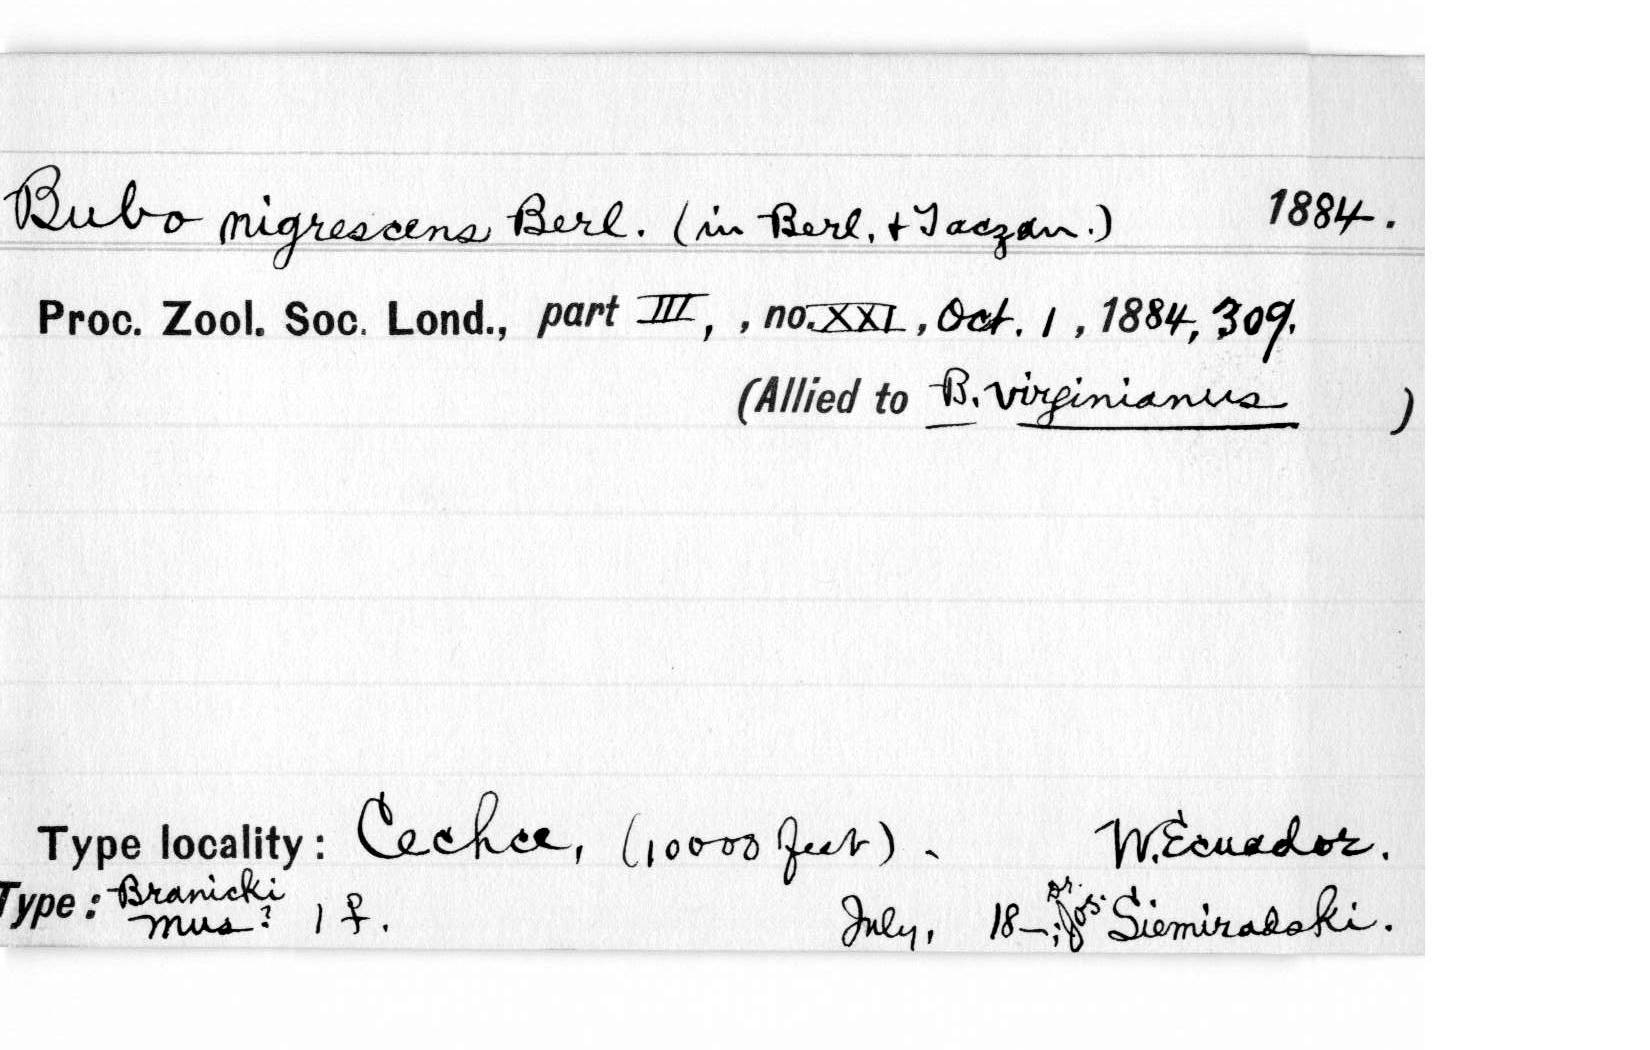 Bubo nigrescens Berl. (in Berl. + Taczan.) 1884.
Proc. Zool. Soc. Lond., part III, , no. XXI, Oct. 1, 1884, 309.
(Allied to B. virginianus )
Type locality: Cechce, (10000 feet). W. Ecuador.
Type: Branicki Mus? 1 ♀. July, 18–; Dr. Jos. Siemiradski.